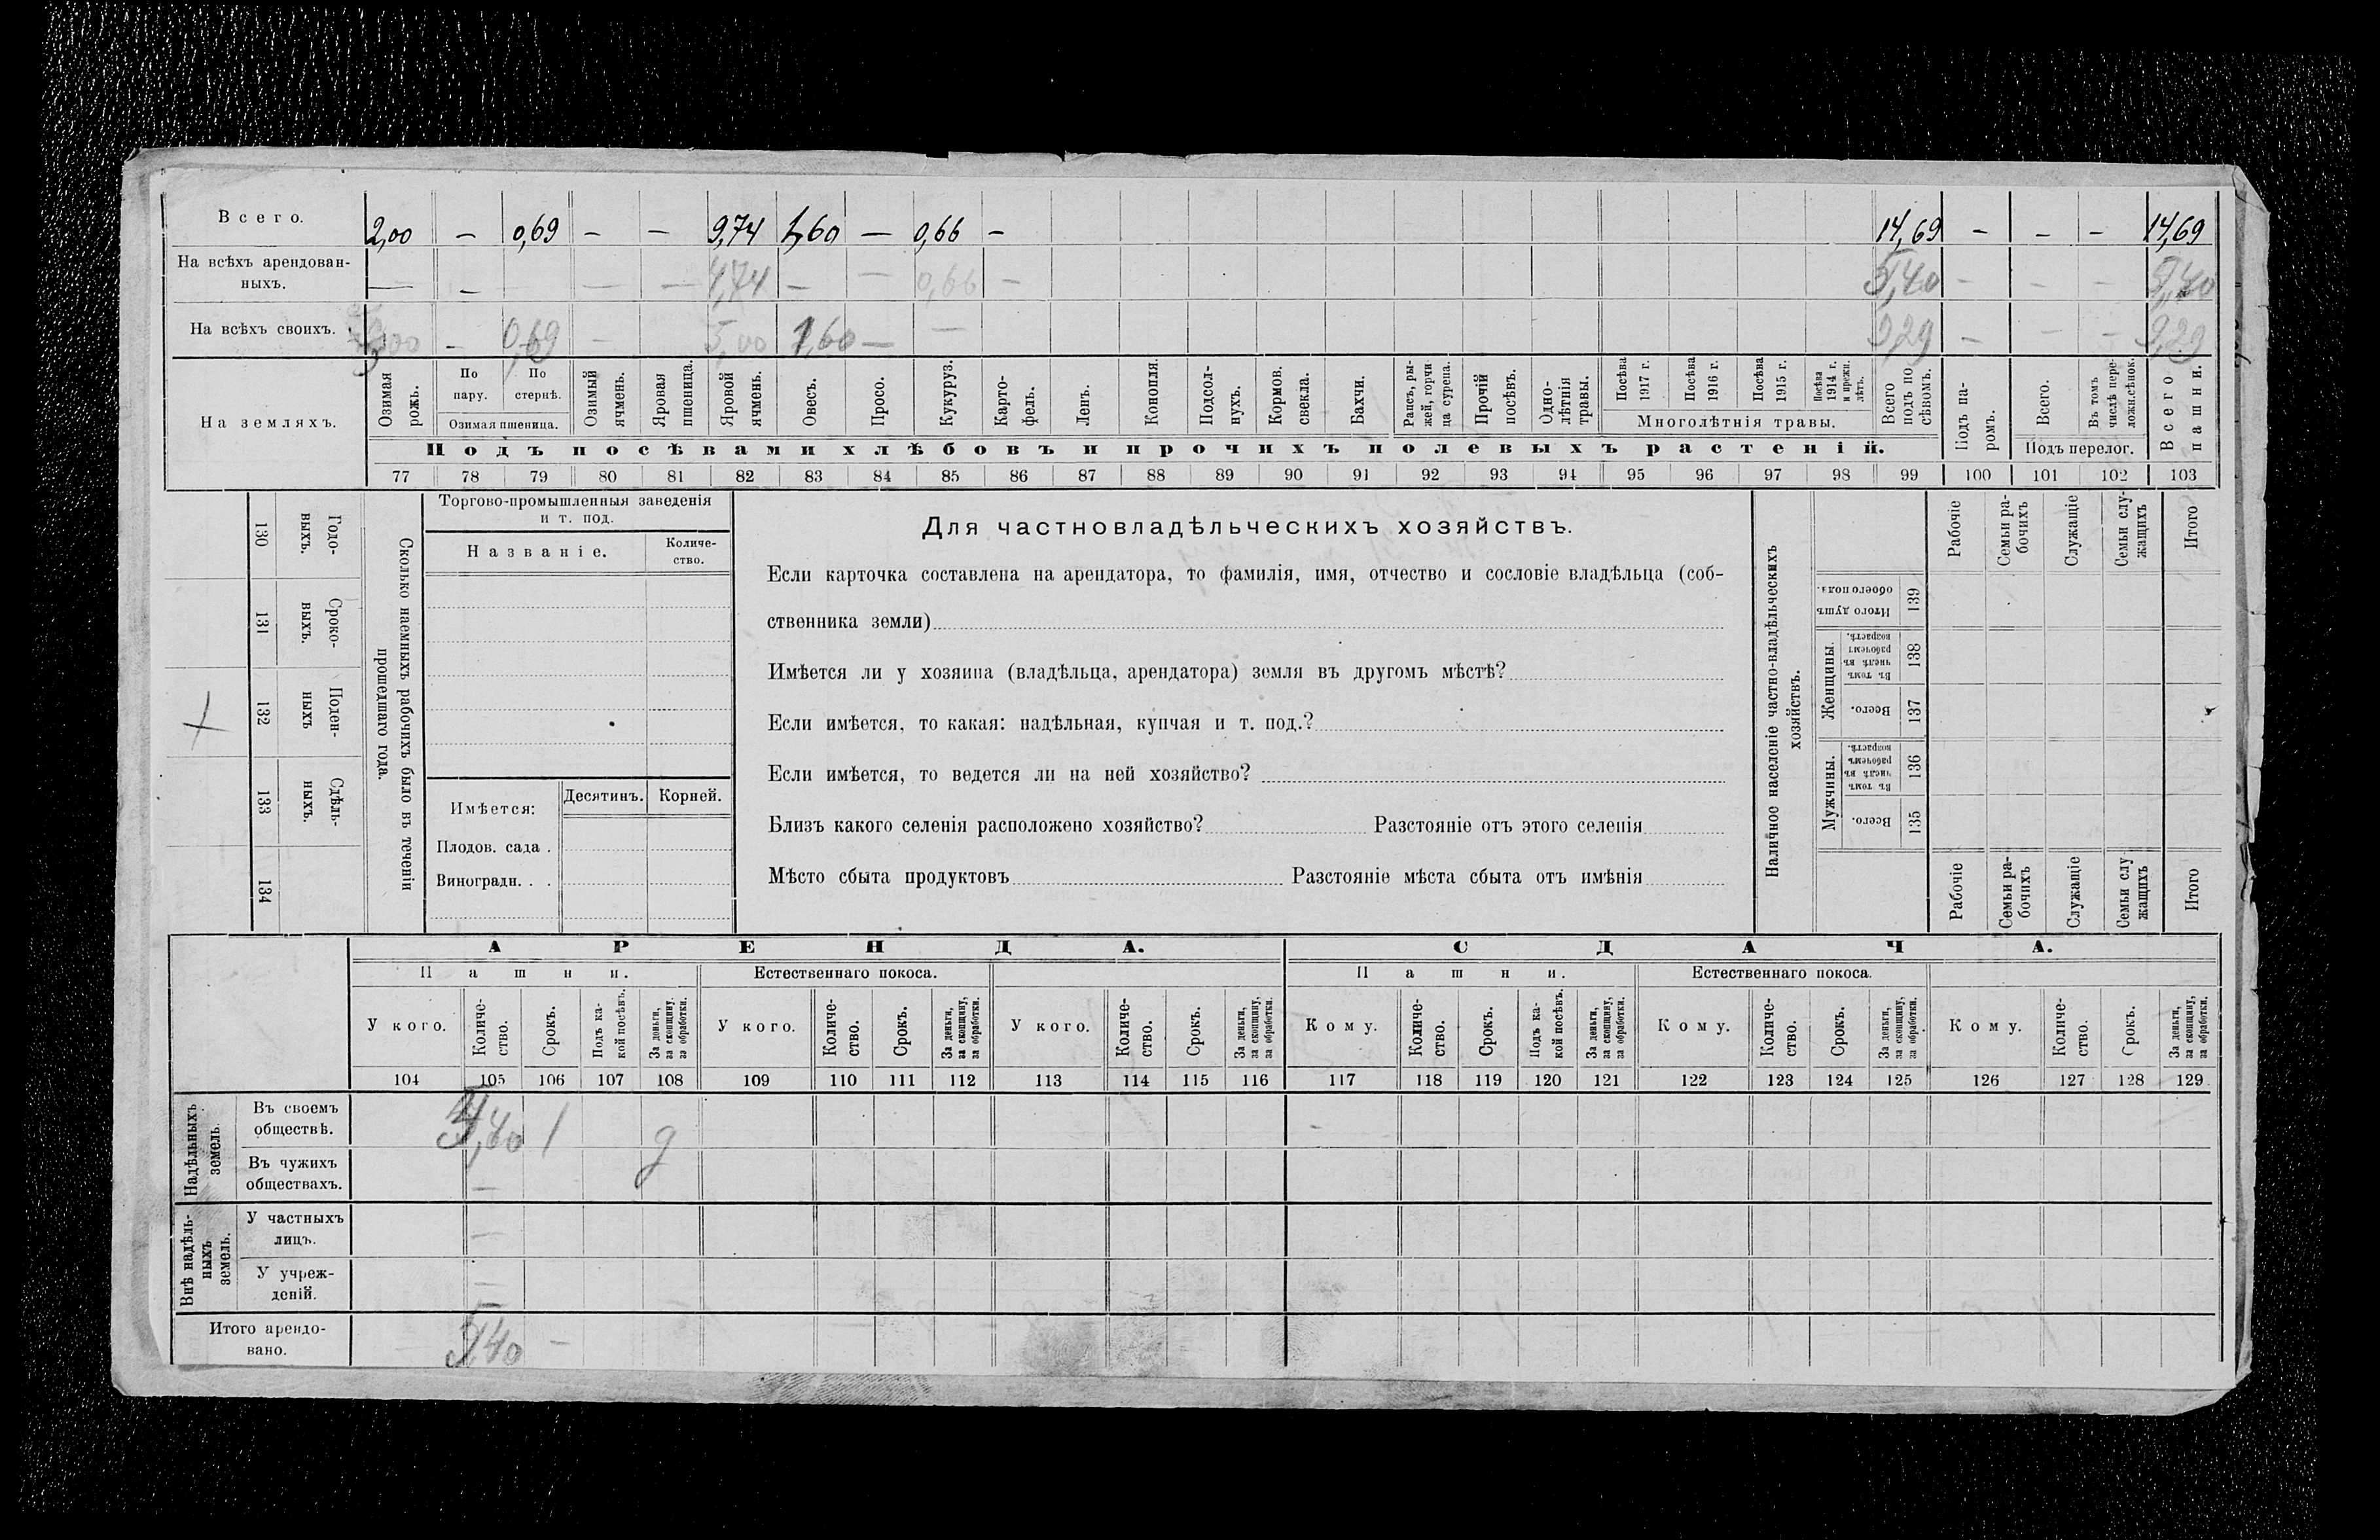 Всего. 2,00 — 0,69 — — 9,74 1,60 — 0,66 — 14,69 — — — 14,69
На всѣхъ арендован-
ныхъ. — — — — 4,74 — — 0,66 — 5,40 — — — 5,40
На всѣхъ своихъ. 2,00 — 0,69 — 5,00 1,60 — — 9,29 — — — 9,29
На земляхъ.
Озимая рожь.
По пару.
По стернѣ.
Озимая пшеница.
Озимый ячмень.
Яровая пшеница.
Яровой ячмень.
Овесъ.
Просо.
Кукуруз.
Карто-
фель.
Ленъ.
Конопля.
Подсол-
нухъ.
Кормов. свекла.
Бахчи.
Рапсъ, ры-
жей, горчи
ца сурепа.
Прочій посѣвъ.
Одно-
лѣтнія
травы.
Посѣва 1917 г.
Посѣва 1916 г.
Посѣва 1915 г.
Посѣва 1914 г. и прежн. лѣтъ.
Многолѣтнія травы.
Всего подъ по
сѣвомъ.
Подъ па-
ромъ.
Всего.
Въ томъ числѣ пере-
ложн.сѣнок.
Подъ перелог.
Всего пашни.
Подъ посѣвами хлѣбовъ и прочихъ полевыхъ растеній.
77 78 79 80 81 82 83 84 85 86 87 88 89 90 91 92 93 94 95 96 97 98 99 100 101 102 103
130 Годо-
выхъ.
131 Сроко-
выхъ.
132 Поден-
ныхъ
133 Сдѣль-
ныхъ.
134
Сколько наемныхъ рабочихъ было въ теченіи
прошедшаго года.
Торгово-промышленныя заведенія
и т. под.
Названіе.
Количе-
ство.
Имѣется:
Десятинъ.
Корней.
Плодов. сада .
Виноградн. . .
Для частновладѣльческихъ хозяйствъ.
Если карточка составлена на арендатора, то фамилія, имя, отчество и сословіе владѣльца (соб-
ственника земли)
Имѣется ли у хозяина (владѣльца, арендатора) земля въ другомъ мѣстѣ?
Если имѣется, то какая: надѣльная, купчая и т. под.?
Если имѣется, то ведется ли на ней хозяйство?
Близъ какого селенія расположено хозяйство? Разстояніе отъ этого селенія
Мѣсто сбыта продуктовъ Разстояніе мѣста сбыта отъ имѣнія
Наличное населеніе частно-владѣльческихъ
хозяйствъ.
Рабочіе
Семьи ра-
бочихъ
Служащіе
Семьи слу-
жащихъ
Итого
Итого душъ обоего пола. 139
Женщины.
Въ томъ числѣ въ рабочемъ возрастѣ. 138
Всего. 137
Мужчины.
Въ томъ числѣ въ рабочемъ возрастѣ. 136
Всего. 135
Рабочіе
Семьи ра-
бочихъ
Служащіе
Семьи слу
жащихъ
Итого
АРЕНДА. СДАЧА.
Пашни. Естественнаго покоса. Пашни. Естественнаго покоса.
У кого. Количе-
ство. Срокъ. Подъ ка-
кой посѣвъ. За деньги, за скопщину, за обработки. У кого. Количе-
ство. Срокъ. За деньги, за скопщину, за обработки. У кого. Количе-
ство. Срокъ. За деньги, за скопщину, за обработки. Кому. Количе-
ство. Срокъ. Подъ ка-
кой посѣвъ. За деньги, за скопщину, за обработки. Кому. Количе-
ство. Срокъ. За деньги, за скопщину, за обработки. Кому. Количе-
ство. Срокъ. За деньги, за скопщину, за обработки.
104 105 106 107 108 109 110 111 112 113 114 115 116 117 118 119 120 121 122 123 124 125 126 127 128 129
Надѣльныхъ
земель.
Въ своемъ
обществѣ. 5,40 1 д
Въ чужихъ
обществахъ. —
Внѣ надѣль-
ныхъ
земель.
У частныхъ
лицъ. —
У учреж-
деній. —
Итого арендо-
вано. 5,40 —